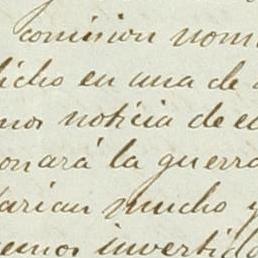 comision nom
dicho en una de
mos noticia de e
onará la guerra
tarian mucho y
emos invertido